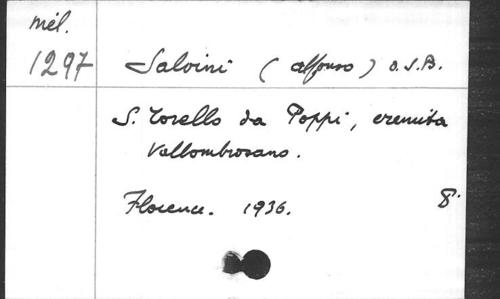 mél.
1297
Salvini (Alfonso) O.S.B.
S. Torello da Poppi, eremita
Vallombrosano.
Florence. 1936. 8°